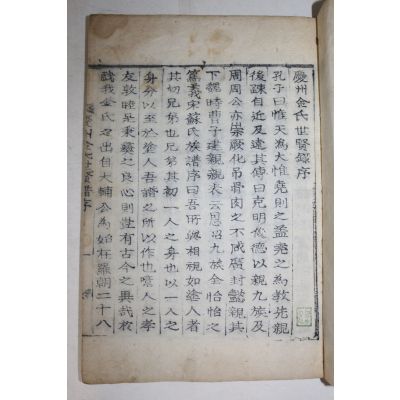 慶州金氏世賢錄序
孔子曰惟天為大惟堯則之盖堯之為敎先親
後疎自近及遠其傳曰克明俊德以親九族及
周周公亦崇厥化吊骨肉之不咸廣封懿親其
下魏時曹子建親親表云恩昭九族金怡怡之
篤義宋蘇氏族譜序曰吾所與相視如塗人者
其初兄弟也兄弟其初一人之身也以一人之
身分以至於塗人吾譜之所以作也噫人之孝
友敦睦是秉彛之良心則豈有古今之異哉粤
我金氏之出自大輔公為始在羅朝二十八